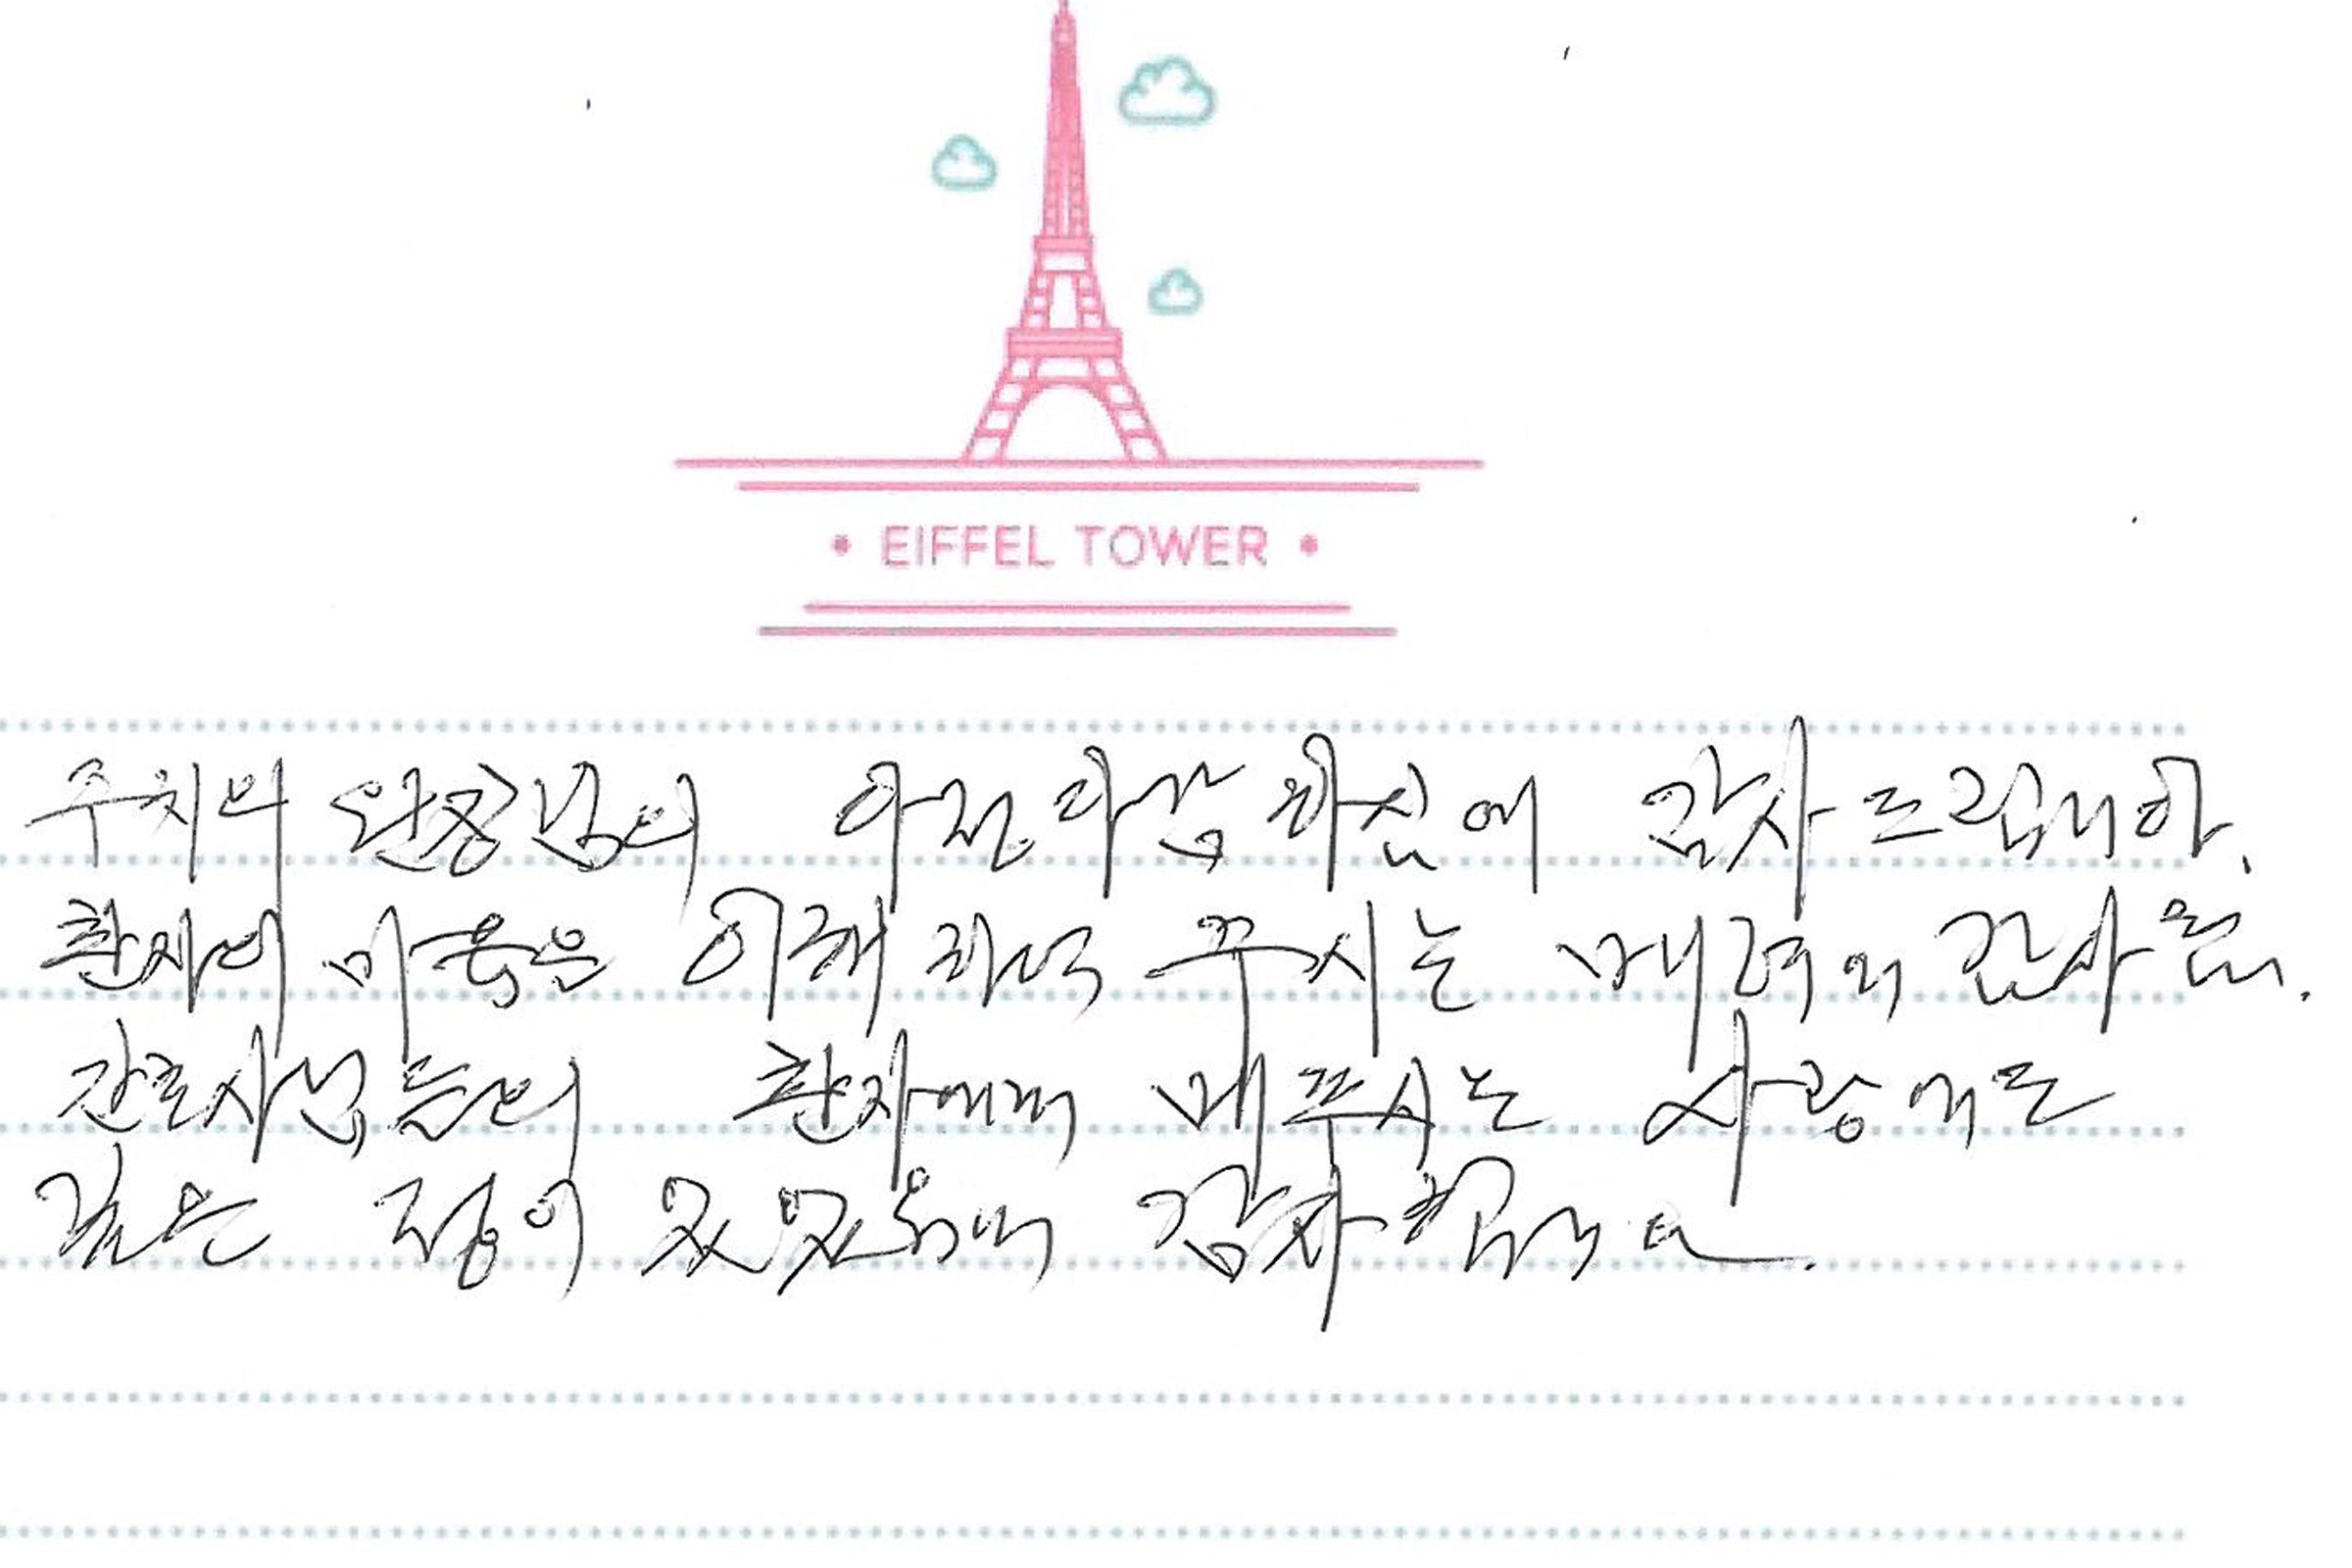 EIFFEL TOWER
주치의 원장님의 자상하심에 감사드립니다.
환자의 마음을 이해하여 주시는 배려에 감사
간호사님들의 환자에게 베푸시는 사랑에도
깊은 정이 있었기에 감사합니다.